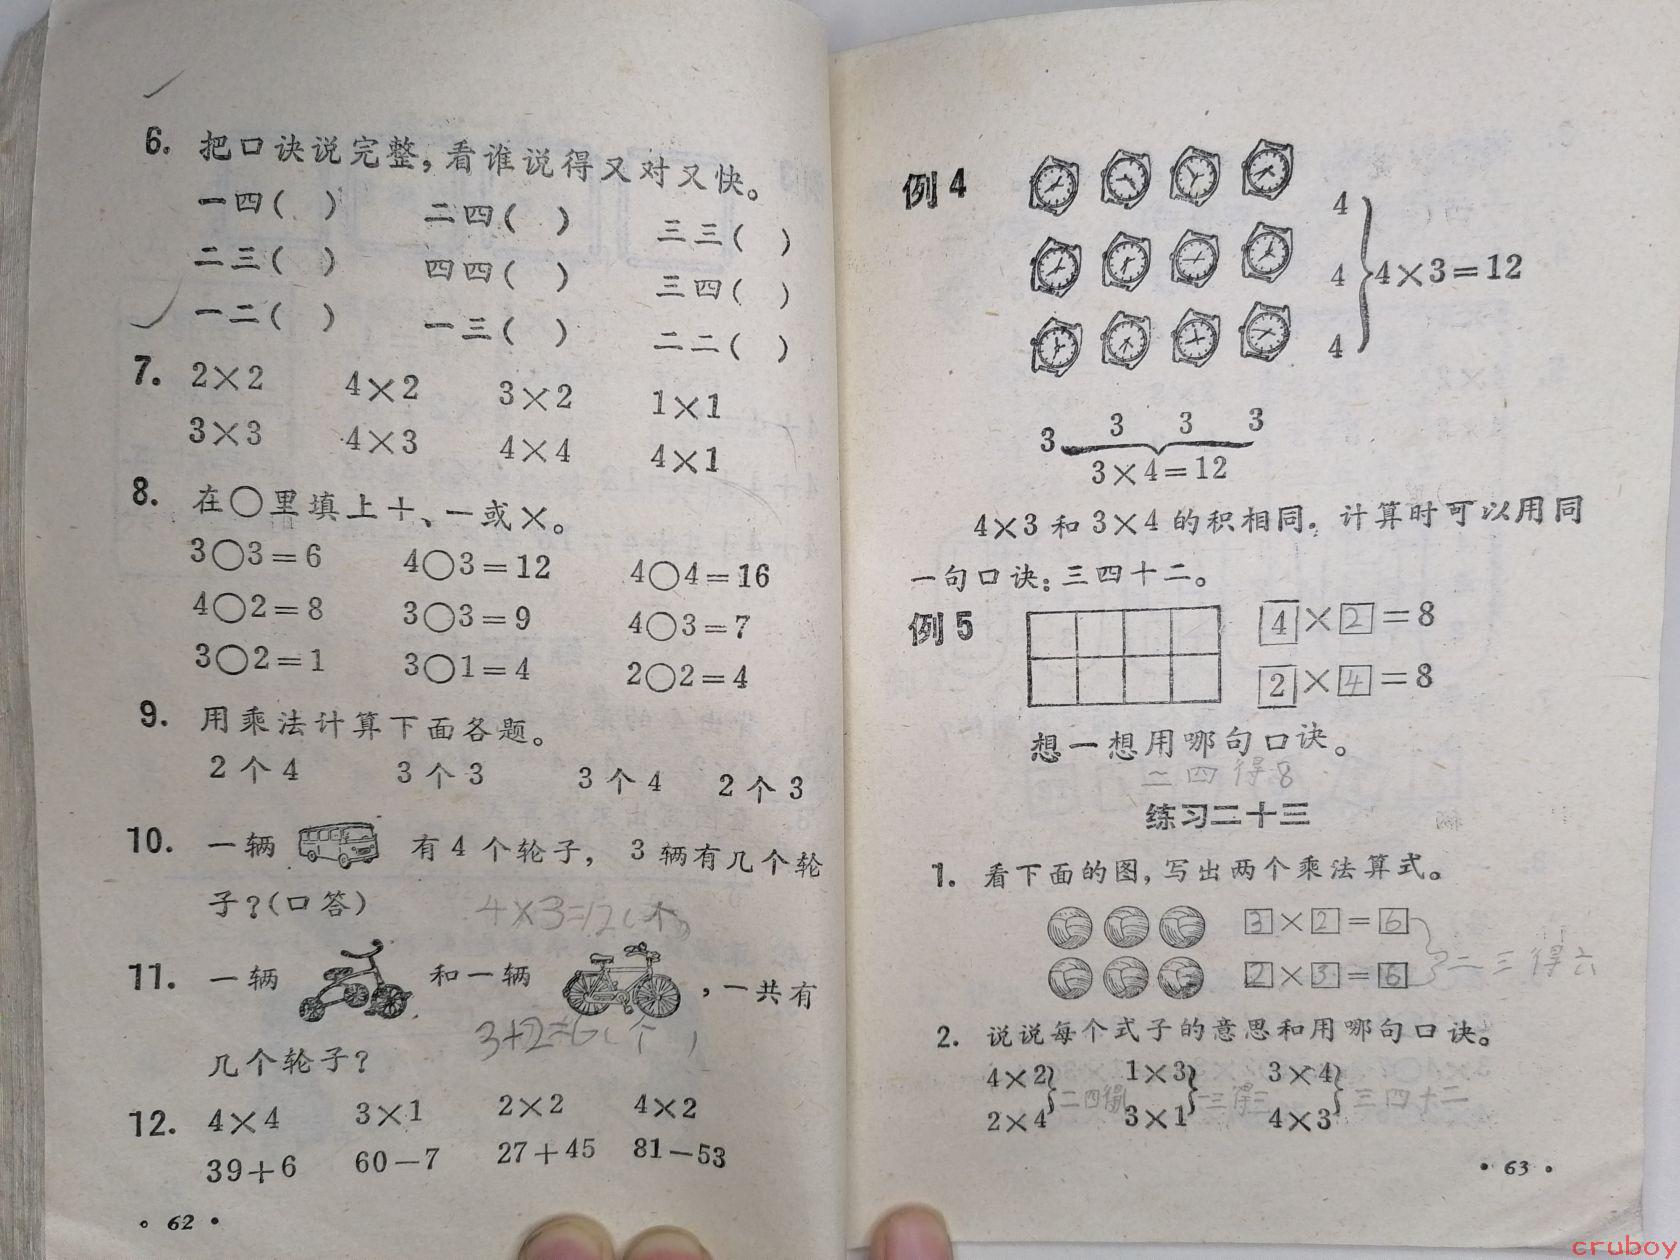 6. 把口诀说完整，看谁说得又对又快。
一四( ) 二四( ) 三三( )
二三( ) 四四( ) 三四( )
一二( ) 一三( ) 二二( )
7. 2×2 4×2 3×2 1×1
3×3 4×3 4×4 4×1
8. 在○里填上＋、－或×。
3○3=6 4○3=12 4○4=16
4○2=8 3○3=9 4○3=7
3○2=1 3○1=4 2○2=4
9. 用乘法计算下面各题。
2个4 3个3 3个4 2个3
10. 一辆 有4个轮子， 3辆有几个轮
子？(口答) 4×3=12(个)
11. 一辆 和一辆 ，一共有
3+2=6(个)
几个轮子？
12. 4×4 3×1 2×2 4×2
39+6 60-7 27+45 81-53
·62·
例4
4
4 4×3=12
4
3 3 3 3
3×4=12
4×3和3×4的积相同。计算时可以用同
一句口诀：三四十二。
例5 4×2=8
2×4=8
想一想用哪句口诀。
二四得8
练习二十三
1. 看下面的图，写出两个乘法算式。
3×2=6
二三得六
2×3=6
2. 说说每个式子的意思和用哪句口诀。
4×2 1×3 3×4
二四得八 一三得三 三四十二
2×4 3×1 4×3
·63·
cruboy